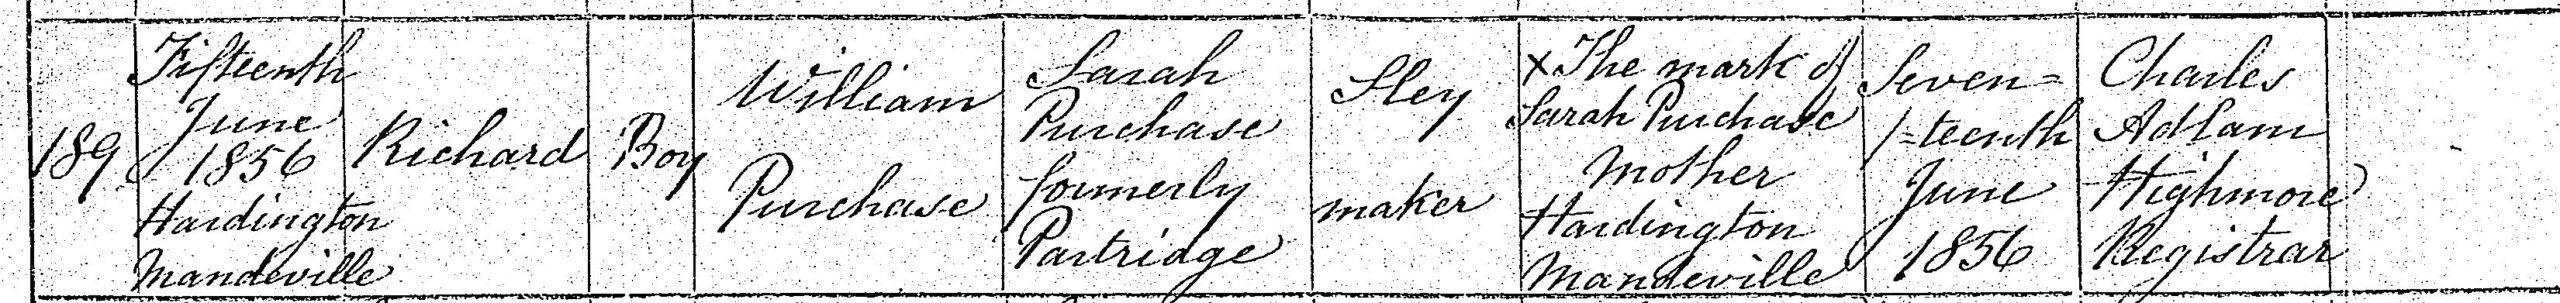 189
Fifteenth
June
1856
Hardington
Mandeville
Richard
Boy
William
Purchase
Sarah
Purchase
formerly
Partridge
Sley
maker
X The mark of
Sarah Purchase
Mother
Hardington
Mandeville
Seven=
/=teenth
June
1856
Charles
Adlam
Highmore
Registrar